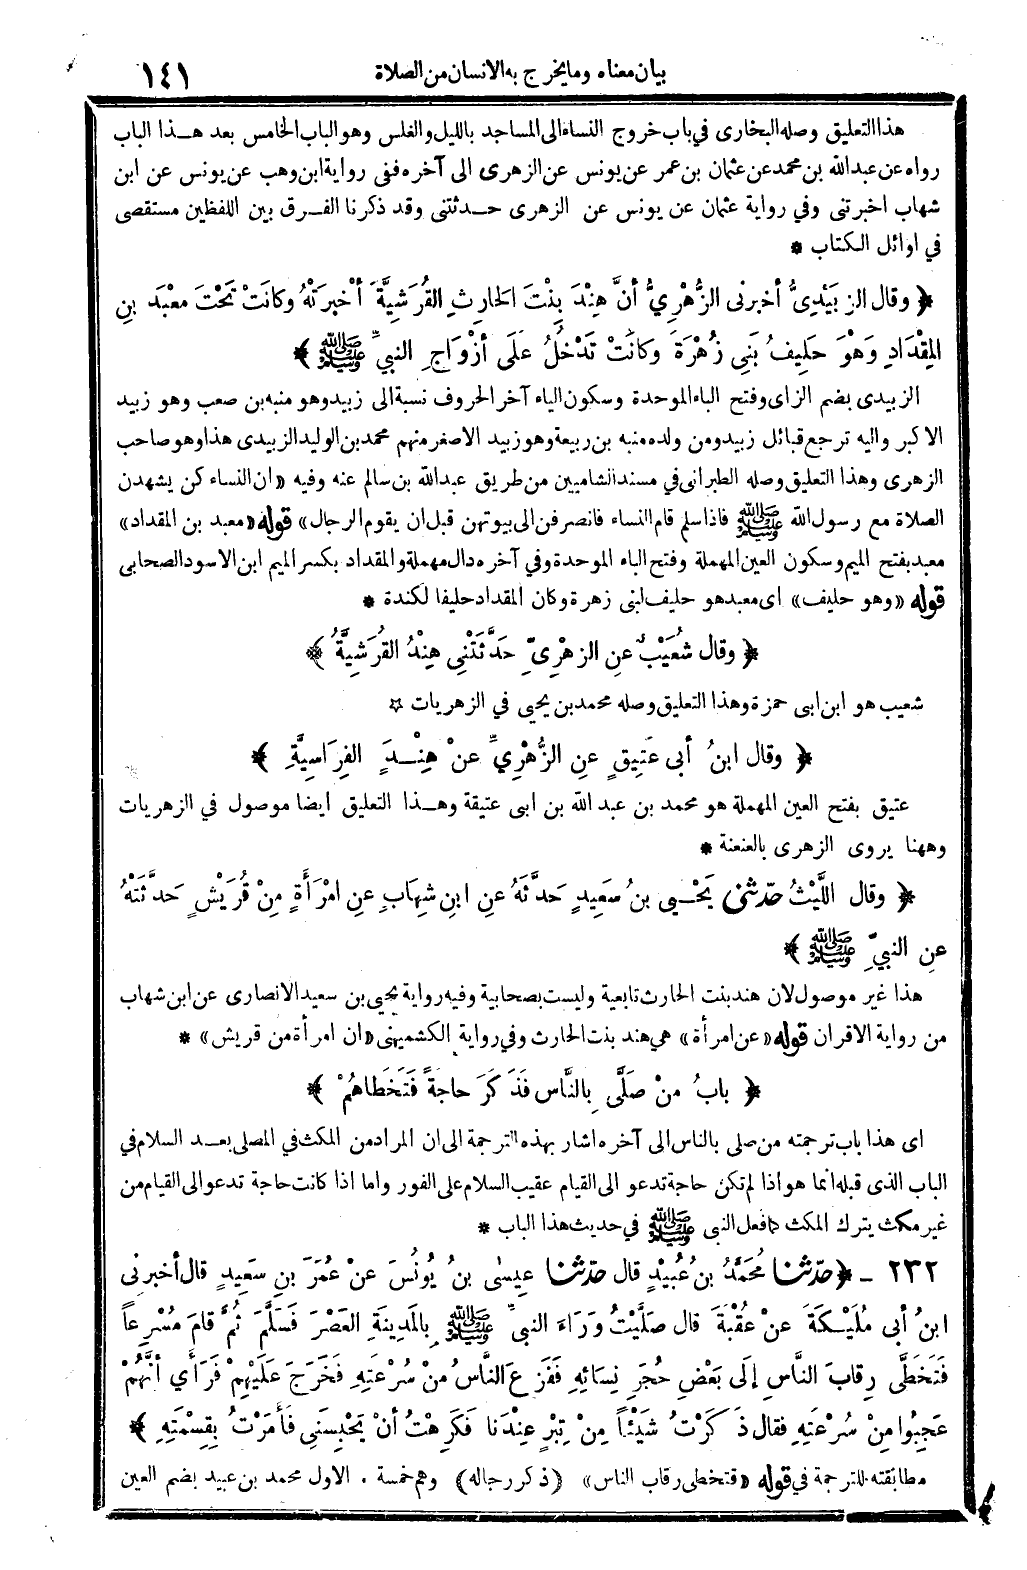 بيان معناه وما يخرج به الانسان من الصلاة
١٤١
هذا التعليق وصله البخارى في باب خروج النساء الى المساجد بالليل والغلس وهو الباب الخامس بعد هـذا الباب
رواه عن عبدالله بن محمد عن عثمان بن عمر عن يونس عن الزهرى الى آخره ففى رواية ابن وهب عن يونس عن ابن
شهاب اخبرتنى وفي رواية عثمان عن يونس عن الزهرى حـدثتنى وقد ذكرنا الفـرق بين اللفظين مستقصى
في اوائل الكتاب *
﴿ وقال الزبَيْدِىُّ أخبرنى الزُّهْرِيُّ أنَّ هِنْدَ بِنْتَ الحَارِثِ القُرَشِيَّةَ أخْبَرَتْهُ وكانَتْ تَحْتَ مَعْبَدِ بنِ
المِقْدَادِ وَهْوَ حَلِيفُ بَنِى زُهْرَةَ وكانَتْ تَدْخُلُ عَلَى أزْوَاجِ النبيِّ ﷺ ﴾
الزبيدى بضم الزاى وفتح الباء الموحدة وسكون الياء آخر الحروف نسبة الى زبيد وهو منبه بن صعب وهو زبيد
الاكبر واليه ترجع قبائل زبيد ومن ولده منبه بن ربيعة وهو زبيد الاصغر منهم محمد بن الوليد الزبيدى هذا وهو صاحب
الزهرى وهذا التعليق وصله الطبرانى في مسند الشاميين من طريق عبدالله بن سالم عنه وفيه «ان النساء كن يشهدن
الصلاة مع رسول الله ﷺ فاذا سلم قام النساء فانصرفن الى بيوتهن قبل ان يقوم الرجال» قوله «معبد بن المقداد»
معبد بفتح الميم وسكون العين المهملة وفتح الباء الموحدة وفي آخره دال مهملة والمقداد بكسر الميم ابن الاسود الصحابى
قوله «وهو حليف» اى معبد هو حليف لبنى زهرة وكان المقداد حليفا لكندة *
﴿ وقال شُعَيْبٌ عنِ الزهْرِيِّ حَدَّثَتْنِى هِنْدُ القُرَشِيَّةُ ﴾
شعيب هو ابن ابى حمزة وهذا التعليق وصله محمد بن يحيى في الزهريات *
﴿ وقال ابنُ أبى عَتِيقٍ عنِ الزُّهْرِيِّ عنْ هِنْـدٍ الفِرَاسِيَّةِ ﴾
عتيق بفتح العين المهملة هو محمد بن عبد الله بن ابى عتيقة وهـذا التعليق ايضا موصول في الزهريات
وههنا يروى الزهرى بالعنعنة *
﴿ وقال اللَّيْثُ حدّثنى يَحْـيى بنُ سَعِيدٍ حَدَّثَهُ عنِ ابنِ شِهَابٍ عنِ امْرَأةٍ مِنْ قُرَيْشٍ حَدَّثَتْهُ
عنِ النبيِّ ﷺ ﴾
هذا غير موصول لان هند بنت الحارث تابعية وليست بصحابية وفيه رواية يحيى بن سعيد الانصارى عن ابن شهاب
من رواية الاقران قوله «عن امرأة» هي هند بنت الحارث وفي رواية الكشميهنى «ان امرأة من قريش» *
﴿ بابُ منْ صَلَّى بِالنَّاسِ فَذَكَرَ حاجَةً فَتَخَطَاهُمْ ﴾
اى هذا باب ترجمته من صلى بالناس الى آخره اشار بهذه الترجمة الى ان المراد من المكث في المصلى بعـد السلام في
الباب الذى قبله انما هو اذا لم تكن حاجة تدعو الى القيام عقيب السلام على الفور واما اذا كانت حاجة تدعو الى القيام من
غير مكث يترك المكث كما فعل النبى ﷺ في حديث هذا الباب *
٢٣٢ ـ ﴿ حدّثنا مُحَمَّدُ بنُ عُبَيْدٍ قال حدّثنا عِيسَى بنُ يُونُسَ عنْ عُمَرَ بنِ سَعِيدٍ قال أخبرنى
ابنُ أبى مُلَيْـكَةَ عنْ عُقْبَةَ قال صَلَّيْتُ وَرَاءَ النبىِّ ﷺ بِالمَدِينَةِ العَصْرَ فَسَلَّمَ ثُمَّ قامَ مُسْرِعاً
فَتَخَطَّى رِقابَ النَّاسِ إلَى بَعْضِ حُجَرِ نِسَائِهِ فَفَزِعَ النَّاسُ مِنْ سُرْعَتِهِ فَخَرَجَ عَلَيْهِمْ فَرَأى أنَّهُمْ
عَجِبُوا مِنْ سُرْعَتِهِ فقال ذَكَرْتُ شَيْئاً مِنْ تِبْرٍ عِنْدَنا فَكَرِهْتُ أنْ يَحْبِسَنِى فَأَمَرْتُ بِقِسْمَتِهِ ﴾
مطابقته للترجمة في قوله «فتخطى رقاب الناس» (ذكر رجاله) وهم خمسة . الاول محمد بن عبيد بضم العين